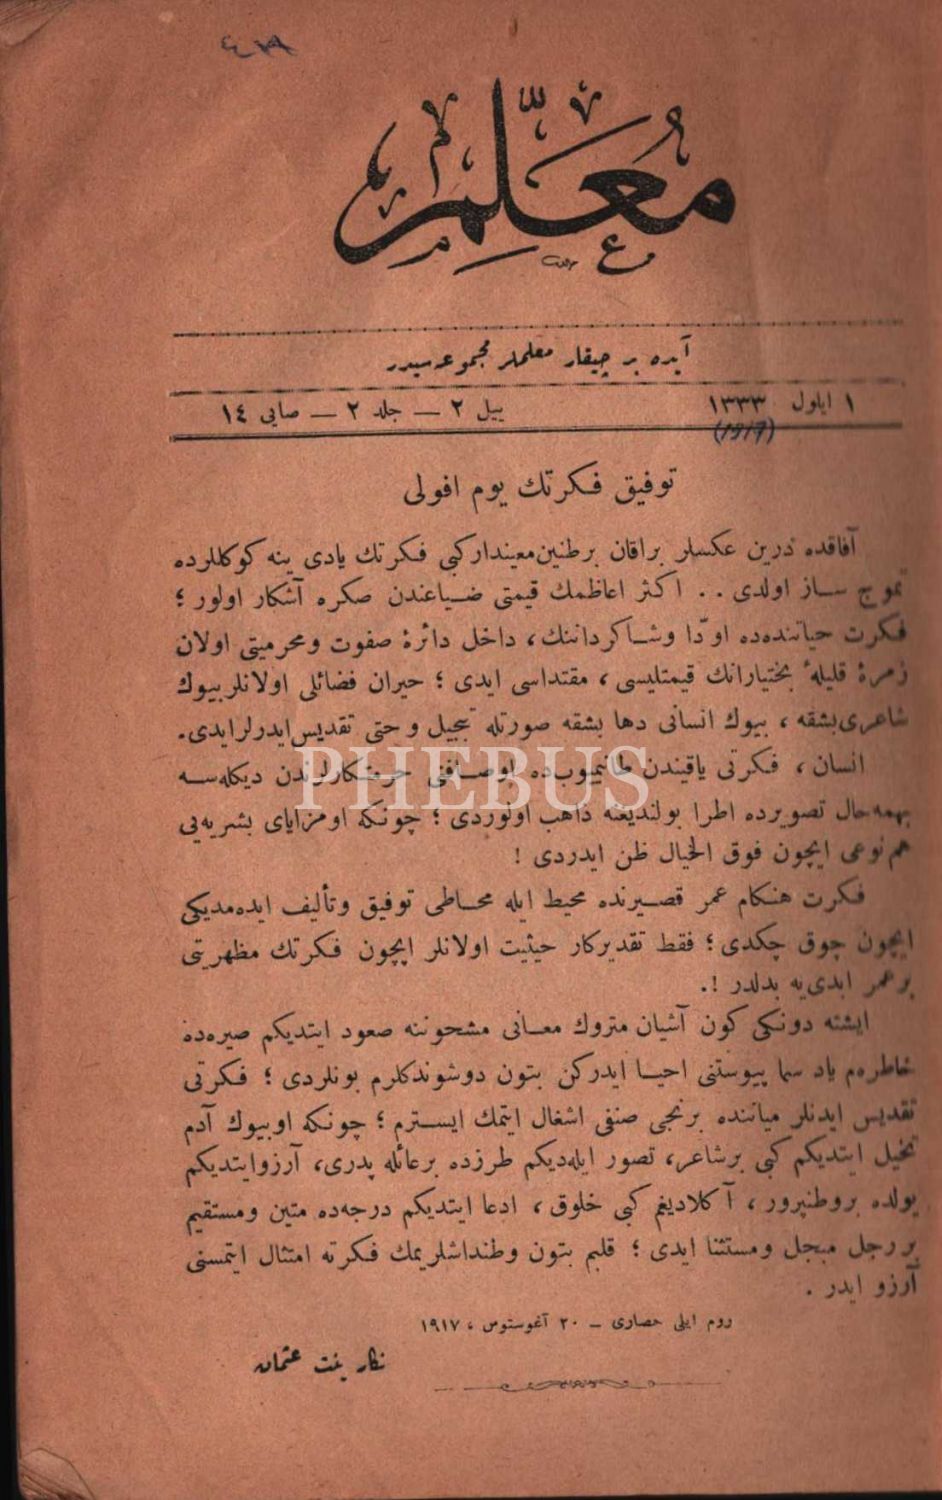 معلم
آيده بر چيقار معلملر مجموعه‌سيدر
١ ايلول ١٣٣٣
(1917)
ييل ٢ — جلد ٢ — صايى ١٤
توفيق فكرتك يوم افولى
آفاقده درين عكسلر براقان برطنين معيندار كبى فكرتك يادى ينه كوكللرده
تموج ساز اولدى . . اكثر اعاظمك قيمتى ضياعندن صكره آشكار اولور ؛
فكرت حياتنده‌ده اودّا وشاكرداننك، داخل دائرهٔ صفوت ومحرميتى اولان
زمرهٔ قليلهٔ بختيارانك قيمتليسى ، مقتداسى ايدى ؛ حيران فضائلى اولانلر بيوك
شاعرى بشقه ، بيوك انسانى دها بشقه صورتله تبجيل و حتى تقديس ايدرلر ايدى.
انسان ، فكرتى ياقيندن طانيميوب‌ده اوصافنى حرمتكارلرندن ديكله‌سه
بهمه‌حال تصويرده اطرا بولنديغنه ذاهب اولوردى ؛ چونكه او مزاياى بشريه‌يى
هم نوعى ايچون فوق الخيال ظن ايدردى !
فكرت هنكام عمر قصيرنده محيط ايله محاطى توفيق وتأليف ايده‌مديكى
ايچون چوق چكدى ؛ فقط تقديركار حيثيت اولانلر ايچون فكرتك مظهريتى
بر عمر ابدى‌يه بدلدر !.
ايشته دونكى كون آشيان متروك معانى مشحوننه صعود ايتديكم صيره‌ده
خاطره‌م ياد سما پيوستنى احيا ايدركن بتون دوشوندكلرم بونلردى ؛ فكرتى
تقديس ايدنلر مياننده برنجى صفى اشغال ايتمك ايسترم ؛ چونكه اوبيوك آدم
تخيل ايتديكم كبى برشاعر، تصور ايله‌ديكم طرزده برعائله پدرى، آرزوايتديكم
يولده بروطنپرور ، آكلاديغم كبى خلوق ، ادعا ايتديكم درجه‌ده متين ومستقيم
بر رجل مبجل ومستثنا ايدى ؛ قلبم بتون وطنداشلريمك فكرته امتثال ايتمسنى
آرزو ايدر .
روم ايلى حصارى — ٢٠ آغوستوس ، ١٩١٧
نكار بنت عثمان
PHEBUS